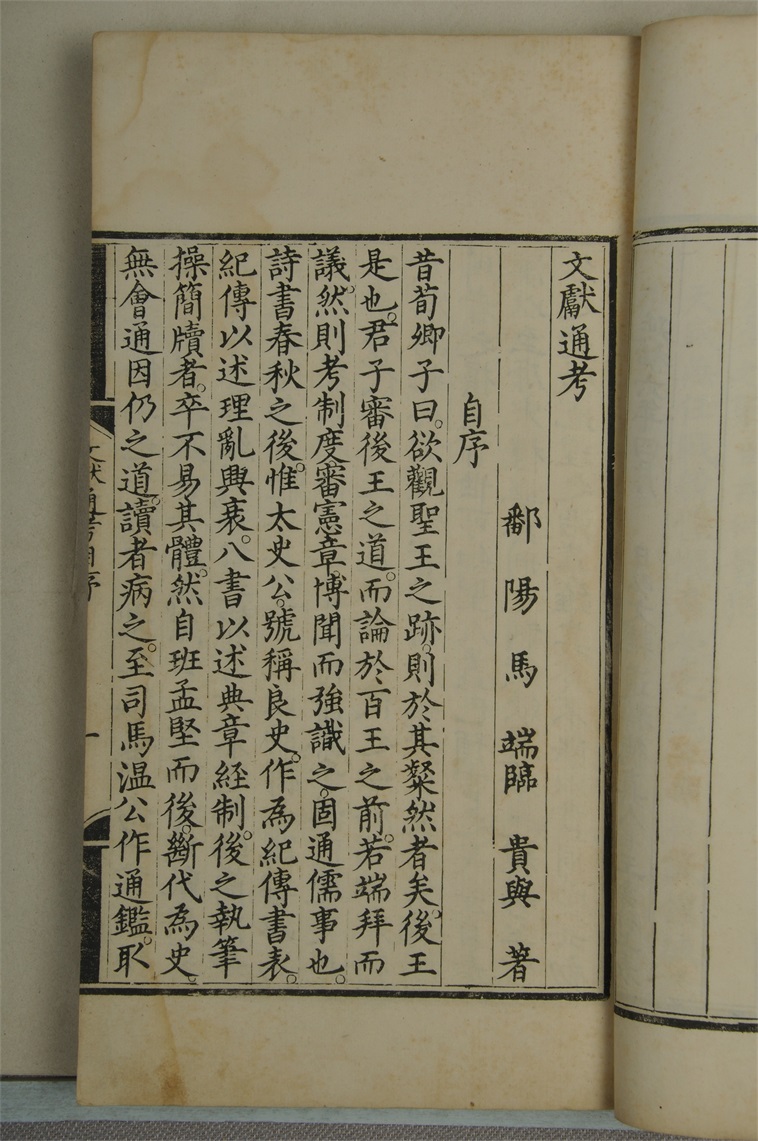 文獻通考
鄱陽馬端臨貴與著
自序
昔荀卿子曰。欲觀聖王之跡。則於其粲然者矣。後王
是也。君子審後王之道。而論於百王之前。若端拜而
議。然則考制度審憲章。博聞而強識之。固通儒事也。
詩書春秋之後。惟太史公。號稱良史。作為紀傳書表。
紀傳以述理亂興衰。八書以述典章經制。後之執筆
操簡牘者。卒不易其體。然自班孟堅而後。斷代為史。
無會通因仍之道。讀者病之。至司馬温公作通鑑。取
文献通考自序
一